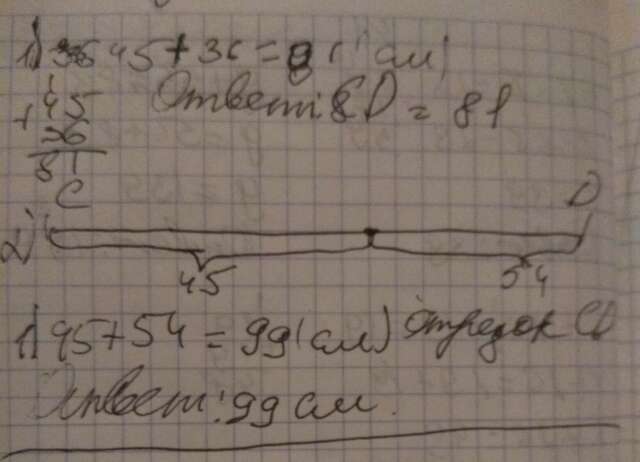 1) 45+36=81(см)
+45
36
81
Ответ: CD = 81
C D
2)
45 54
1) 45+54=99(см) отрезок CD
Ответ: 99 см.